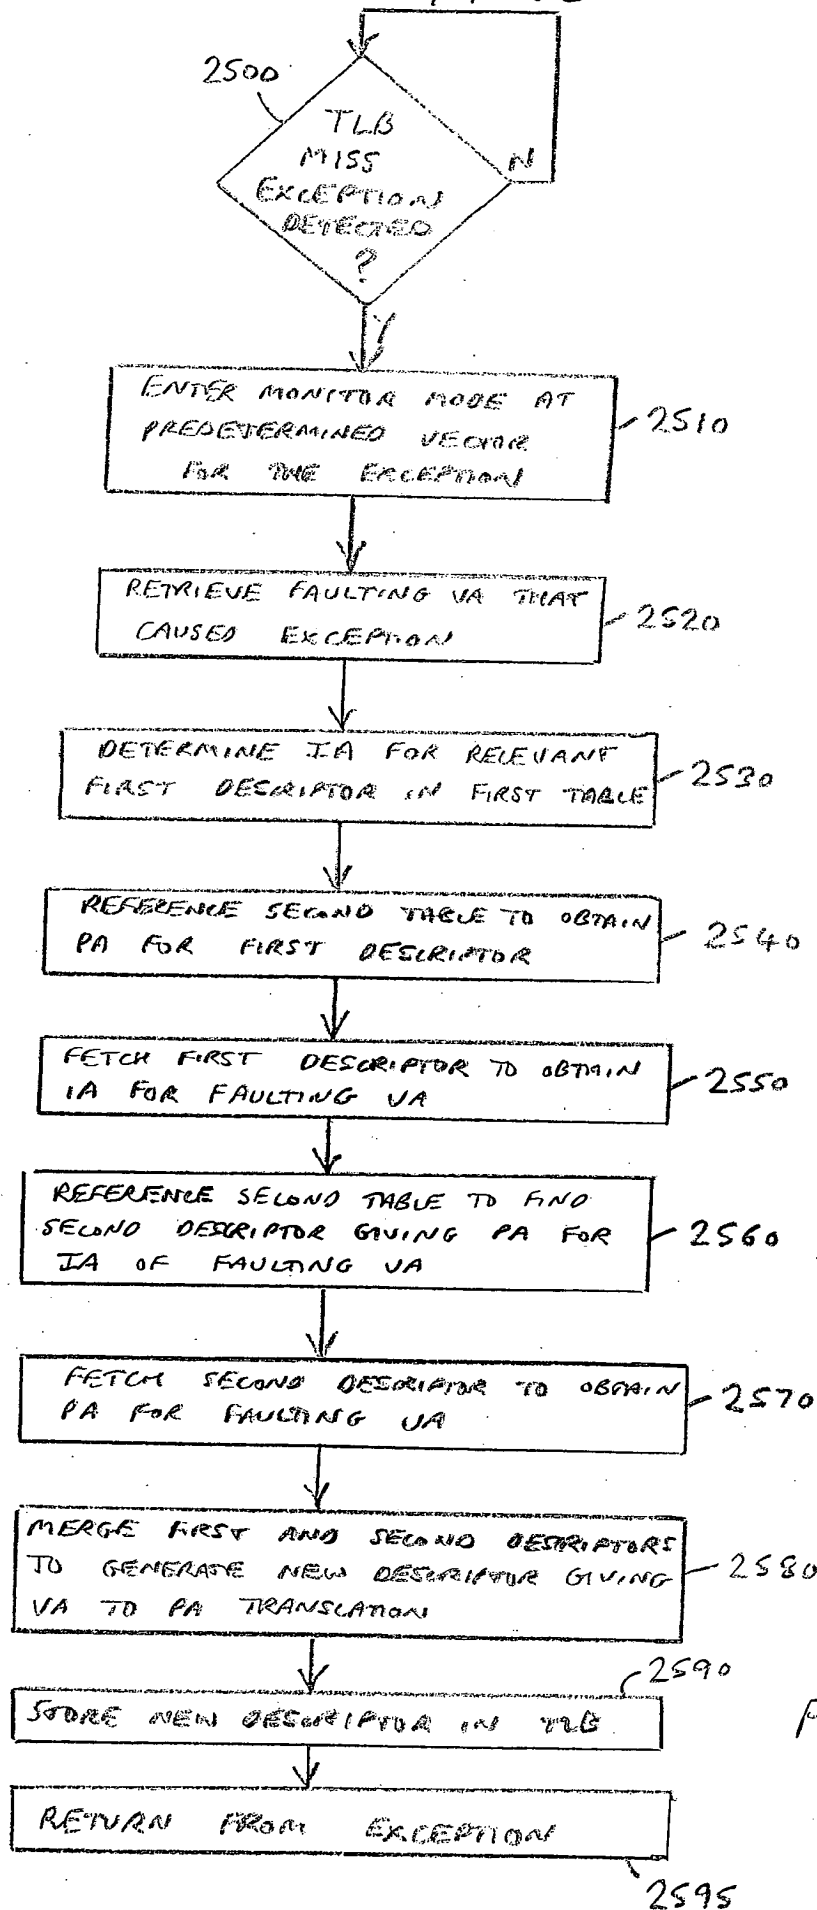 2500
TLB
MISS
EXCEPTION
DETECTED
?
N
Y
ENTER MONITOR MODE AT
PREDETERMINED VECTOR
FOR THE EXCEPTION
2510
RETRIEVE FAULTING VA THAT
CAUSED EXCEPTION
2520
DETERMINE IA FOR RELEVANT
FIRST DESCRIPTOR IN FIRST TABLE
2530
REFERENCE SECOND TABLE TO OBTAIN
PA FOR FIRST DESCRIPTOR
2540
FETCH FIRST DESCRIPTOR TO OBTAIN
IA FOR FAULTING VA
2550
REFERENCE SECOND TABLE TO FIND
SECOND DESCRIPTOR GIVING PA FOR
IA OF FAULTING VA
2560
FETCH SECOND DESCRIPTOR TO OBTAIN
PA FOR FAULTING VA
2570
MERGE FIRST AND SECOND DESCRIPTORS
TO GENERATE NEW DESCRIPTOR GIVING
VA TO PA TRANSLATION
2580
2590
STORE NEW DESCRIPTOR IN TLB
RETURN FROM EXCEPTION
2595